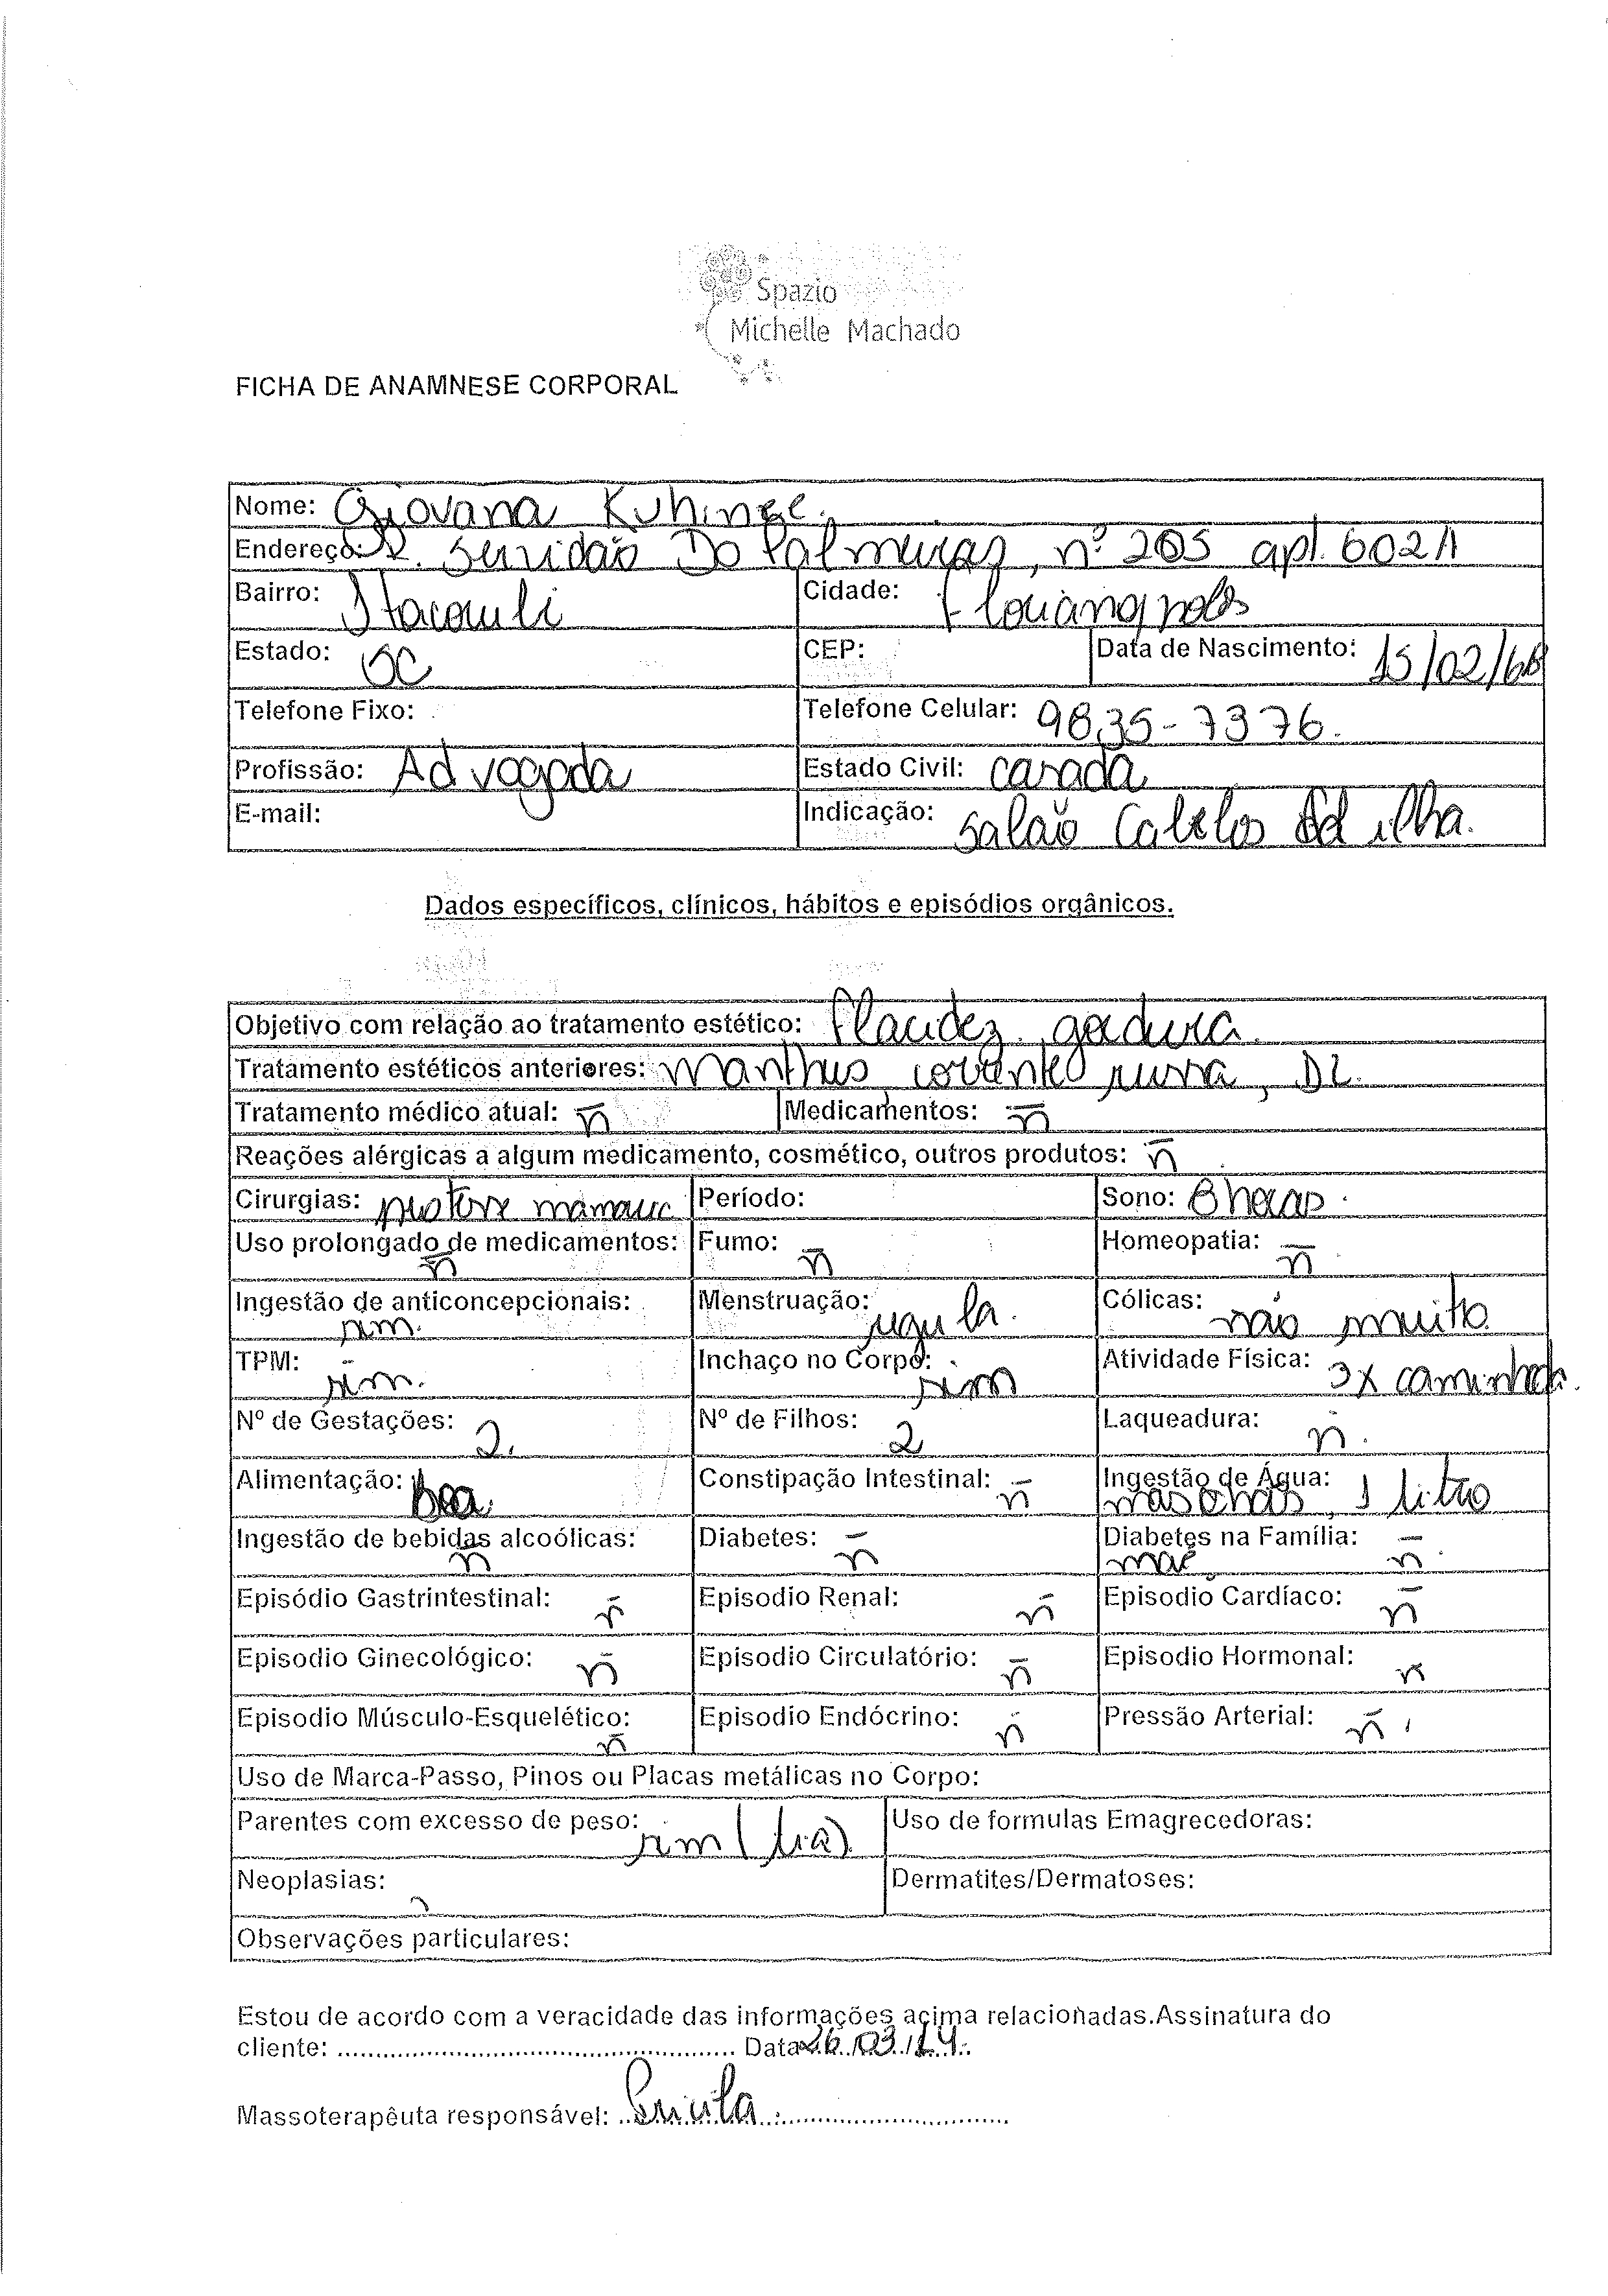 Spazio
Michelle Machado
FICHA DE ANAMNESE CORPORAL
Nome: Giovana Kuhinge
Endereço: R. Servidão Do Palmeiras, nº 205 apt. 602 A
Bairro: Itacorubi Cidade: Florianopolis
Estado: SC CEP: Data de Nascimento: 15/02/68
Telefone Fixo: Telefone Celular: 9835-7376.
Profissão: Advogada Estado Civil: casada
E-mail: Indicação: salão Cabelos da ilha.
Dados específicos, clínicos, hábitos e episódios orgânicos.
Objetivo com relação ao tratamento estético: Flacidez, gordura.
Tratamento estéticos anteriores: Manthus corrente russa, DL.
Tratamento médico atual: ñ Medicamentos: ñ
Reações alérgicas a algum medicamento, cosmético, outros produtos: ñ
Cirurgias: protese mamaria Período: Sono: 8 horas.
Uso prolongado de medicamentos: ñ Fumo: ñ Homeopatia: ñ
Ingestão de anticoncepcionais: sim. Menstruação: regula. Cólicas: não muito
TPM: sim. Inchaço no Corpo: sim Atividade Física: 3x caminhada.
Nº de Gestações: 2. Nº de Filhos: 2 Laqueadura: ñ.
Alimentação: boa. Constipação Intestinal: ñ Ingestão de Água: 1 litro
Ingestão de bebidas alcoólicas: ñ Diabetes: ñ Diabetes na Família: ñ
Episódio Gastrintestinal: ñ Episodio Renal: ñ Episodio Cardíaco: ñ
Episodio Ginecológico: ñ Episodio Circulatório: ñ Episodio Hormonal: ñ
Episodio Músculo-Esquelético: ñ Episodio Endócrino: ñ Pressão Arterial: ñ
Uso de Marca-Passo, Pinos ou Placas metálicas no Corpo:
Parentes com excesso de peso: sim (tia) Uso de formulas Emagrecedoras:
Neoplasias: Dermatites/Dermatoses:
Observações particulares:
Estou de acordo com a veracidade das informações acima relacionadas.Assinatura do
cliente: .................................................. Data 26/03/14.
Massoterapêuta responsável: ..Ericula..................................